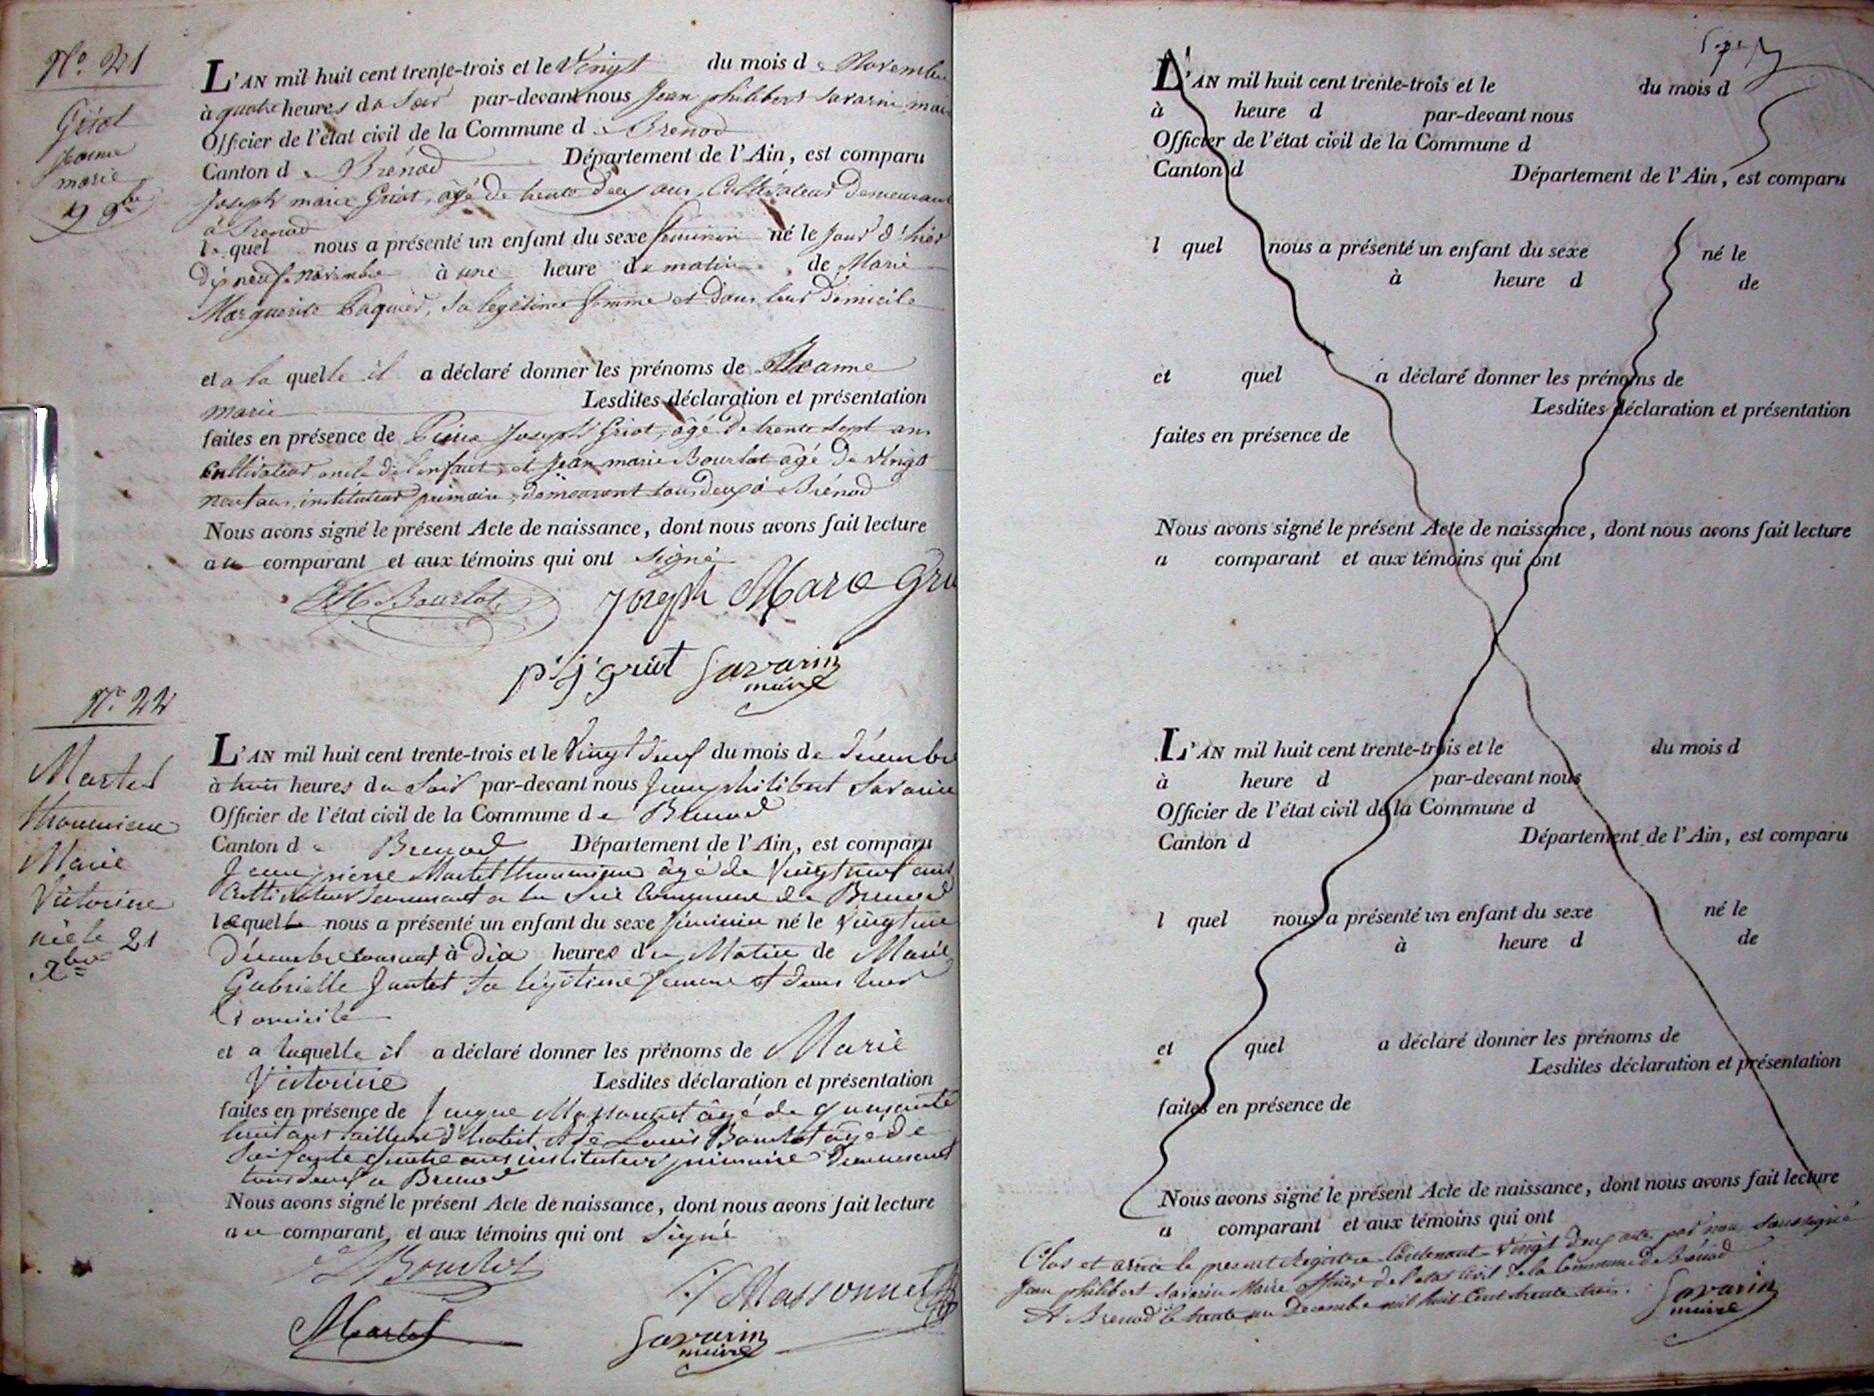 N.° 21
Griot
Jeanne
marie
19 9bre
L'AN mil huit cent trente-trois et le Vingt du mois de Novembre
à quatre heures du Soir par-devant nous Jean philibert Savarin mai
Officier de l'état civil de la Commune de Brenod
Canton de Brénod Département de l'Ain, est comparu
Joseph marie Griot, âgé de trente deux ans, Cultivateur demeurant
à Brenod
lequel nous a présenté un enfant du sexe feminin né le Jour d'hier
dix neuf novembre à une heure du matin de Marie
Marguerite Paquier, Sa légitime femme et dans leur domicile
et a la quelle il a déclaré donner les prénoms de Jeanne
marie Lesdites déclaration et présentation
faites en présence de Pierre Joseph Griot, âgé de trente sept ans
Cultivateur oncle de l'enfant, et Jean marie Bourlot âgé de vingt
neuf ans, instituteur primaire, demeurant tous deux à Brénod
Nous avons signé le présent Acte de naissance, dont nous avons fait lecture
au comparant et aux témoins qui ont signé
JM. Bourlot
Joseph Marie Gri
p j griot Savarin
maire
N.° 22
Martel
thoumieme
Marie
Victorine
née le 21
Xbre
L'AN mil huit cent trente-trois et le Vingt deux du mois de décembre
à trois heures du Soir par-devant nous Jean philibert Savarin
Officier de l'état civil de la Commune de Brenod
Canton de Brenod Département de l'Ain, est comparu
Jean pierre Martel âgé de Vingt neuf ans
Cultivateur demeurant a la Commune de Brenod
lequel nous a présenté un enfant du sexe féminin né le vingt un
Décembre courant à dix heures du Matin de Marie
Gabrielle Jantet Sa légitime femme et dans leur
Domicile
et a laquelle il a déclaré donner les prénoms de Marie
Victorine Lesdites déclaration et présentation
faites en présence de Jacque Massonnet âgé de quarante
huit ans tailleur d'habit et de Louis Bourlot âgé de
Soixante quatre ans instituteur primaire Demeurant
tous deux a Brenod
Nous avons signé le présent Acte de naissance, dont nous avons fait lecture
au comparant et aux témoins qui ont Signé
L Bourlot
Massonnet
Martel
Savarin
maire
L'AN mil huit cent trente-trois et le du mois d
à heure d par-devant nous
Officier de l'état civil de la Commune d
Canton d Département de l'Ain, est comparu
l quel nous a présenté un enfant du sexe né le
à heure d de
et quel a déclaré donner les prénoms de
Lesdites déclaration et présentation
faites en présence de
Nous avons signé le présent Acte de naissance, dont nous avons fait lecture
a comparant et aux témoins qui ont
L'AN mil huit cent trente-trois et le du mois d
à heure d par-devant nous
Officier de l'état civil de la Commune d
Canton d Département de l'Ain, est comparu
l quel nous a présenté un enfant du sexe né le
à heure d de
et quel a déclaré donner les prénoms de
Lesdites déclaration et présentation
faites en présence de
Nous avons signé le présent Acte de naissance, dont nous avons fait lecture
a comparant et aux témoins qui ont
Clos et arrêté le present Registre Contenant Vingt deux acte par nous Soussigné
Jean philibert Savarin Maire officier de l'etat Civil de la Commune de Brénod
A Brenod le trente un Decembre mil huit Cent trente trois. Savarin
maire